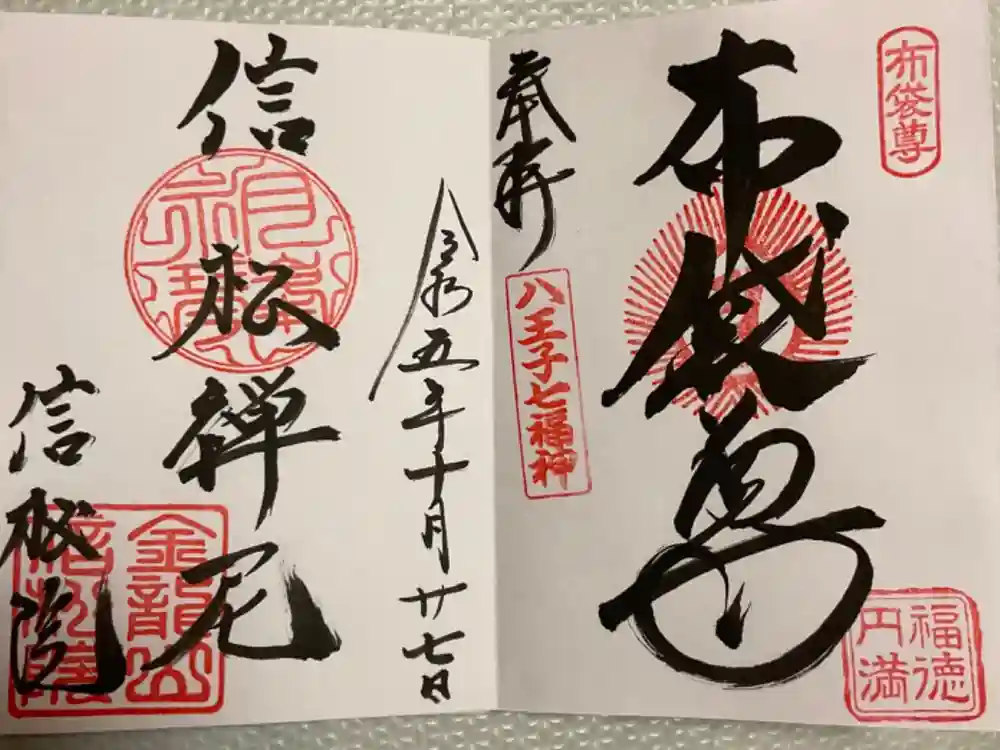 布袋尊
布袋尊
奉拝
八王子七福神
福徳
円満
令和五年十月廿七日
信松禅尼
信松院
金龍山
信松院